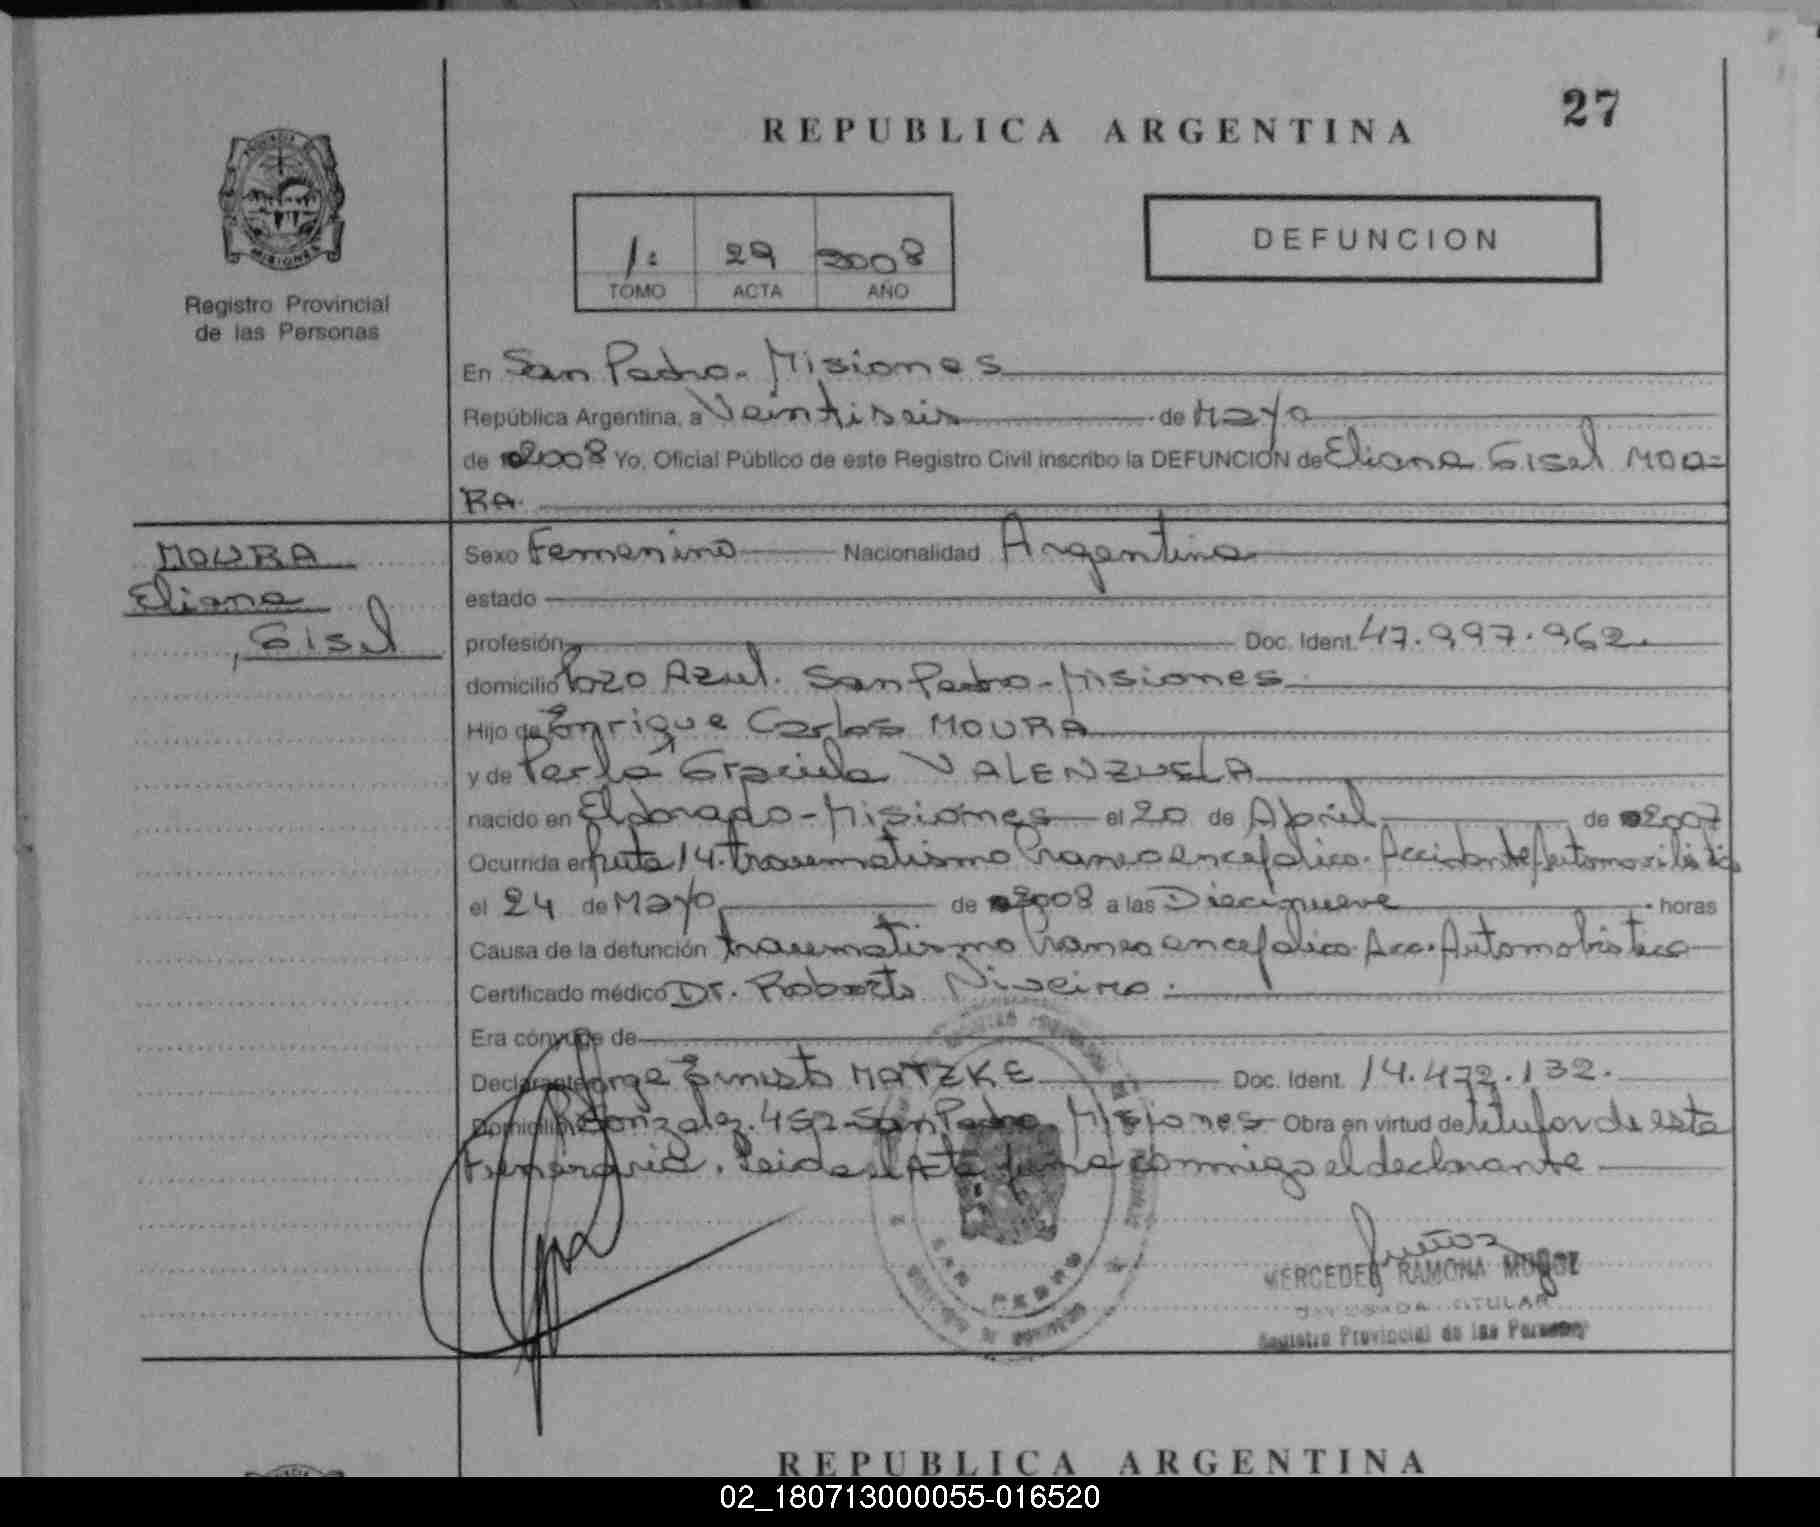 27
REPUBLICA ARGENTINA
DEFUNCION
1: 29 2008
TOMO ACTA AÑO
MISIONES
Registro Provincial
de las Personas
En San Pedro - Misiones
República Argentina, a Veintiseis de Mayo
de 2008 Yo, Oficial Público de este Registro Civil inscribo la DEFUNCION de Eliana Gisel MOU=
RA.
MOURA
Eliana
Gisel
Sexo Femenino Nacionalidad Argentina
estado
profesión Doc. Ident. 47.997.962.
domicilio Pozo Azul. San Pedro - Misiones
Hijo de Enrique Carlos MOURA
y de Perla Graciela VALENZUELA
nacido en Eldorado - Misiones el 20 de Abril de 2007
Ocurrida en Ruta 14. traumatismo Craneoencefalico. Accidente Automovilistico
el 24 de Mayo de 2008 a las Diecinueve horas
Causa de la defunción traumatismo Craneo encefalico. Acc. Automobistico
Certificado médico Dr. Roberto
Era cónyuge de
Declarante Jorge Ernesto MATZKE Doc. Ident. 14.472.132.
Domicilio Gonzalez. 452 - San Pedro Misiones Obra en virtud de titular de esta
Funeraria. Leida el Acta firma conmigo el declarante
SAN PEDRO
MERCEDES RAMONA MUÑOZ
TITULAR
Registro Provincial de las Personas
REPUBLICA ARGENTINA
02_180713000055-016520